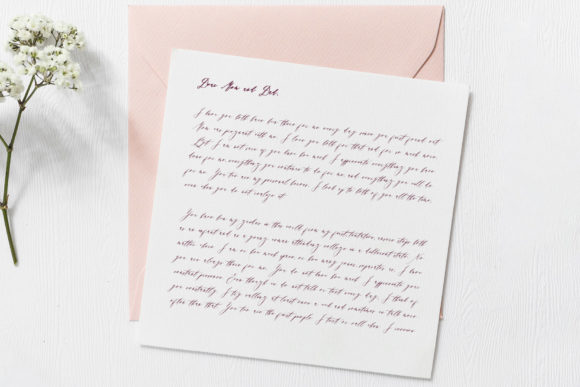 Dear Mom and Dad,
I love you both have been there for me every day since you first found out
Mom was pregnant with me. I love you both for that and for so much more.
But I am not sure if you know how much I appreciate everything you have
done for me, everything you continue to do for me and everything you will do
for me. You two are my personal heroes. I look up to both of you all the time,
even when you do not realize it.
You have been my guides in this world from my first tentative, unsure steps both
as an infant and as a young woman attending college in a different state. No
matter where I am or how much space or how many years separates us, I know
you are always there for me. You do not know how much I appreciate your
constant presence. Even though we do not talk or text every day, I think of
you constantly. I try calling at least once a week and sometimes we talk more
often than that. You two are the first people I text or call when I